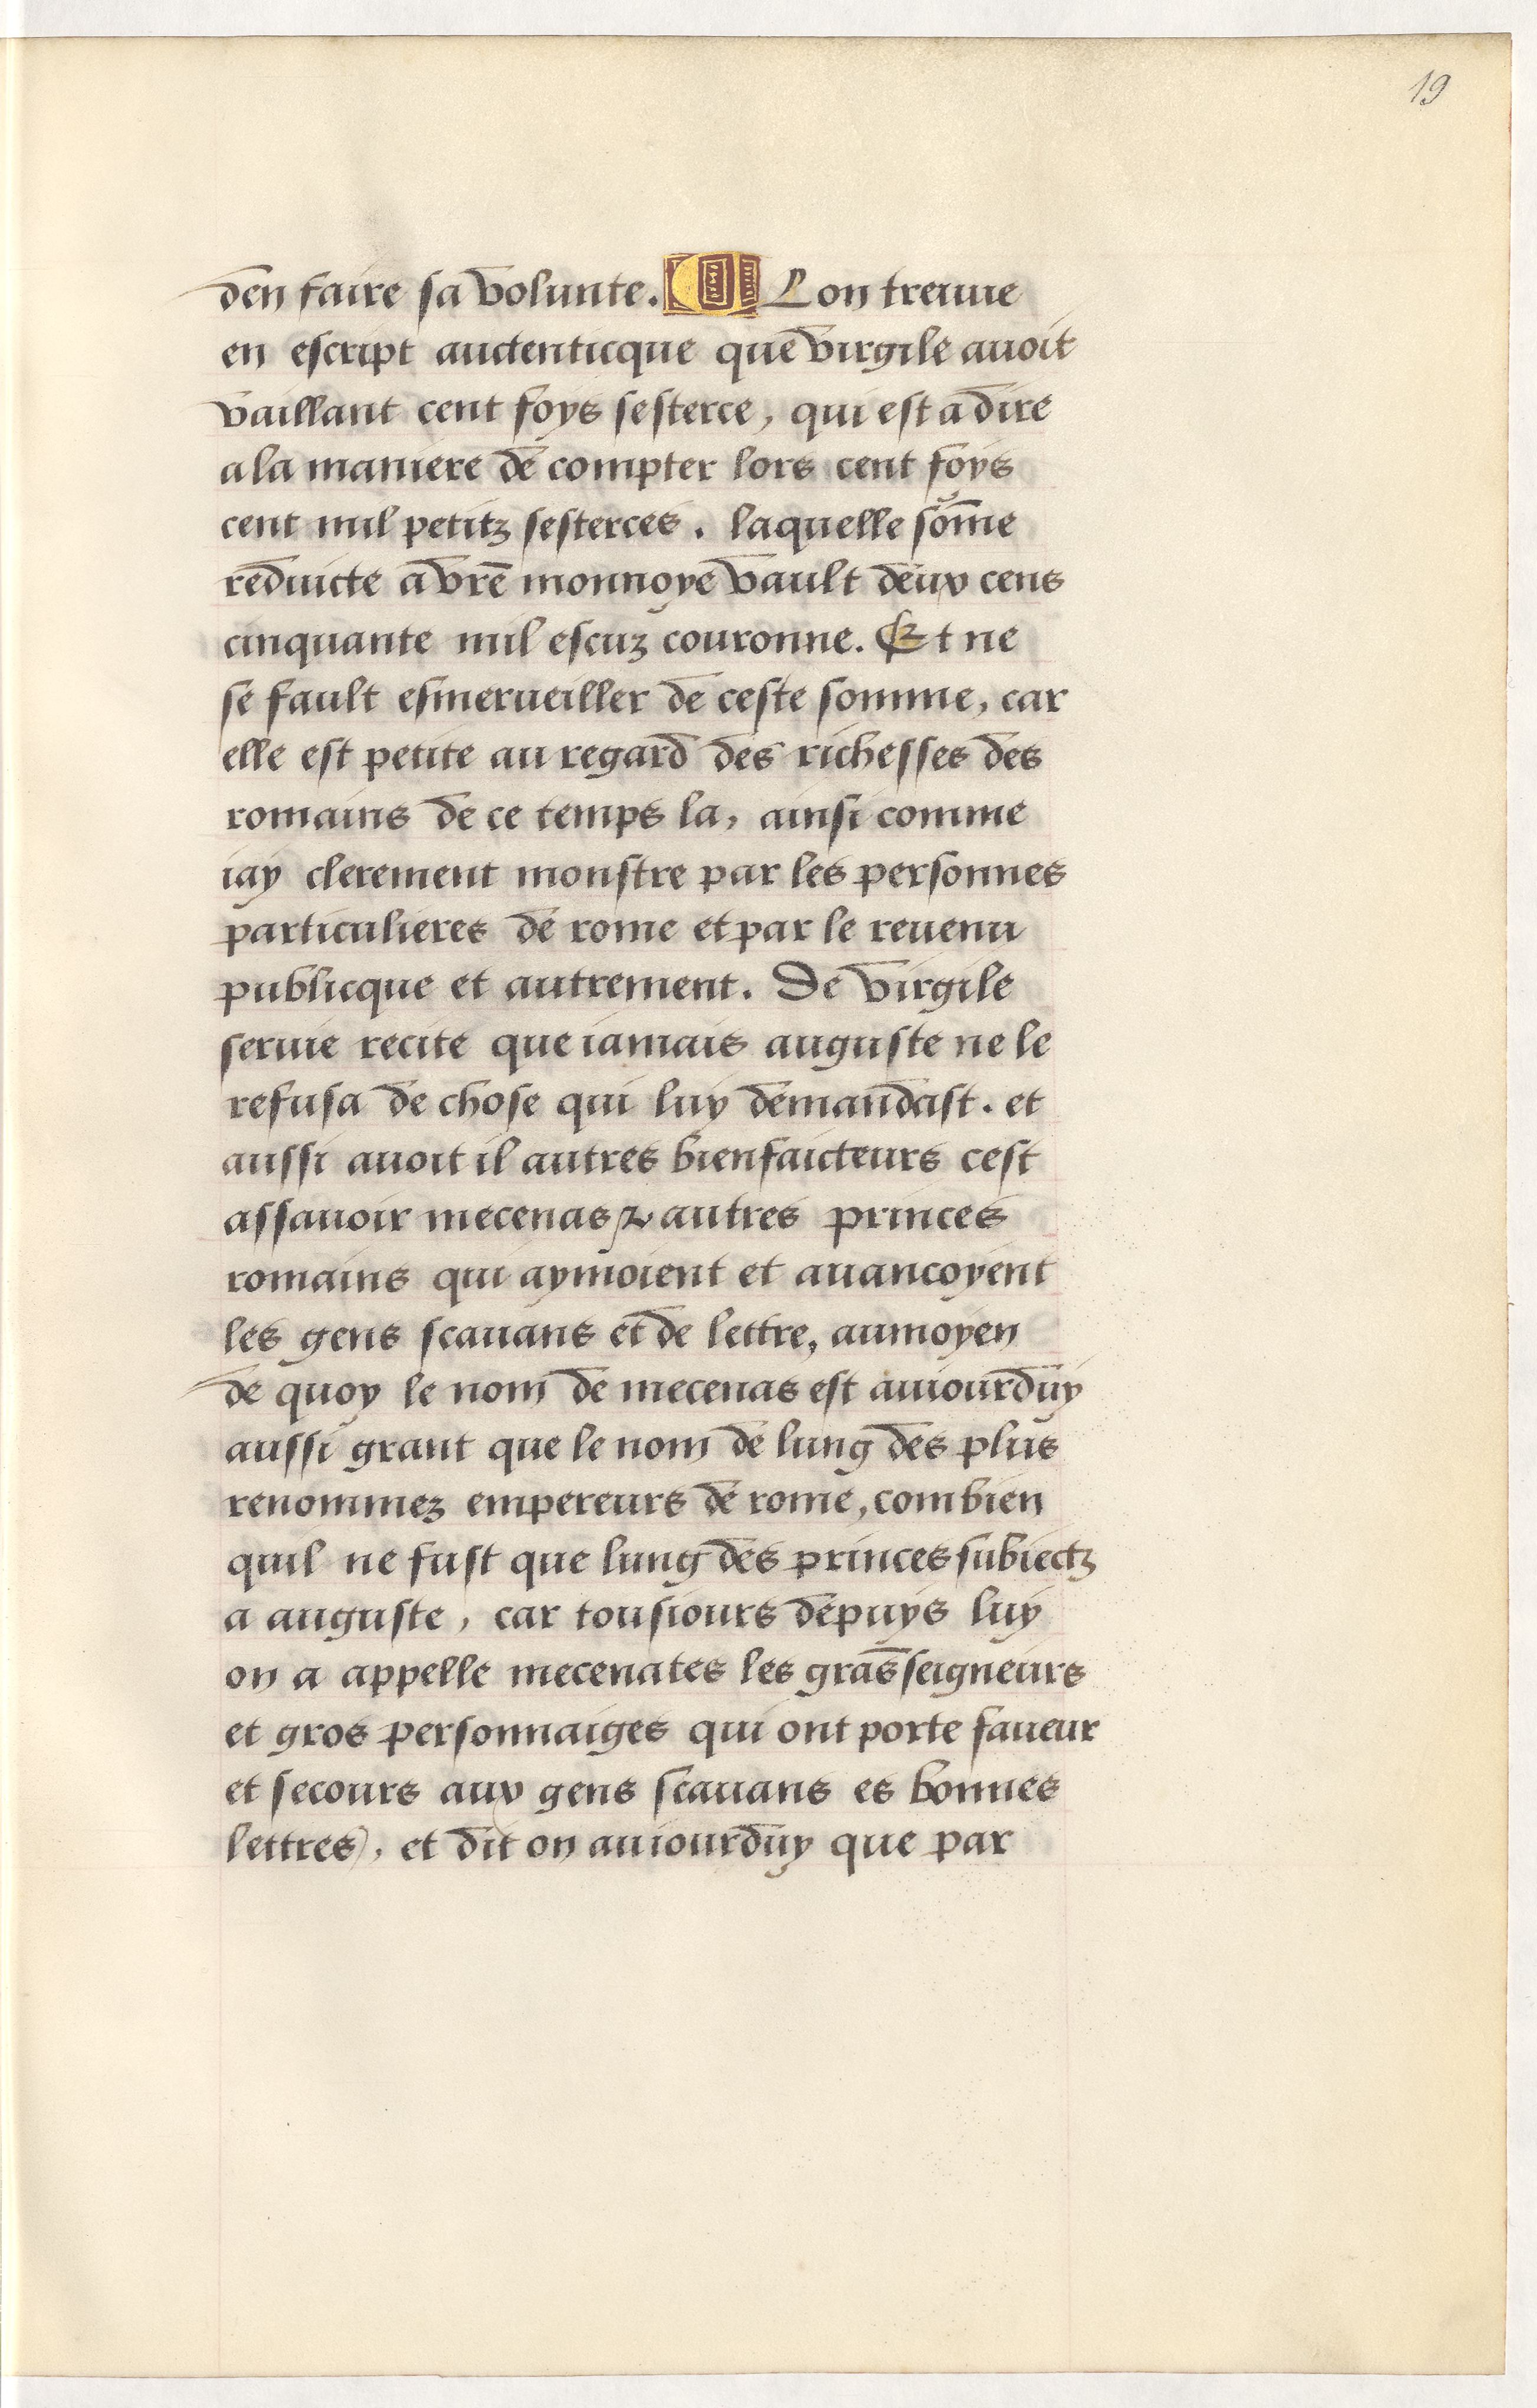 19
den faire sa volunte. ¶ Lon treuue
en escript auctenticque que virgile auoit
vaillant cent foys sesterce, qui est a dire
a la maniere de compter lors cent foys
cent mil petitz sesterces. laquelle som̄e
reduicte a vr̄e monnoye vault deux cens
cinquante mil escuz couronne. Et ne
se fault esmerueiller de ceste somme, car
elle est petite au regard des richesses des
romains de ce temps la, ainsi comme
iay clerement monstre par les personnes
particulieres de rome et par le reuenu
publicque et autrement. De virgile
seruie recite que iamais auguste ne le
refusa de chose qui luy demandast. et
aussi auoit il autres bienfaicteurs cest
assauoir mecenas ⁊ autres princes
romains qui aymoient et auancoyent
les gens scauans et de lettre, aumoyen
de quoy le nom de mecenas est auiourduy
aussi grant que le nom de lung des plus
renommez empereurs de rome, combien
quil ne fust que lung des princes subiectz
a auguste, car tousiours depuys luy
on a appelle mecenates les grās seigneurs
et gros personnaiges qui ont porte faueur
et secours aux gens scauans es bonnes
lettres), et dit on auiourduy que par